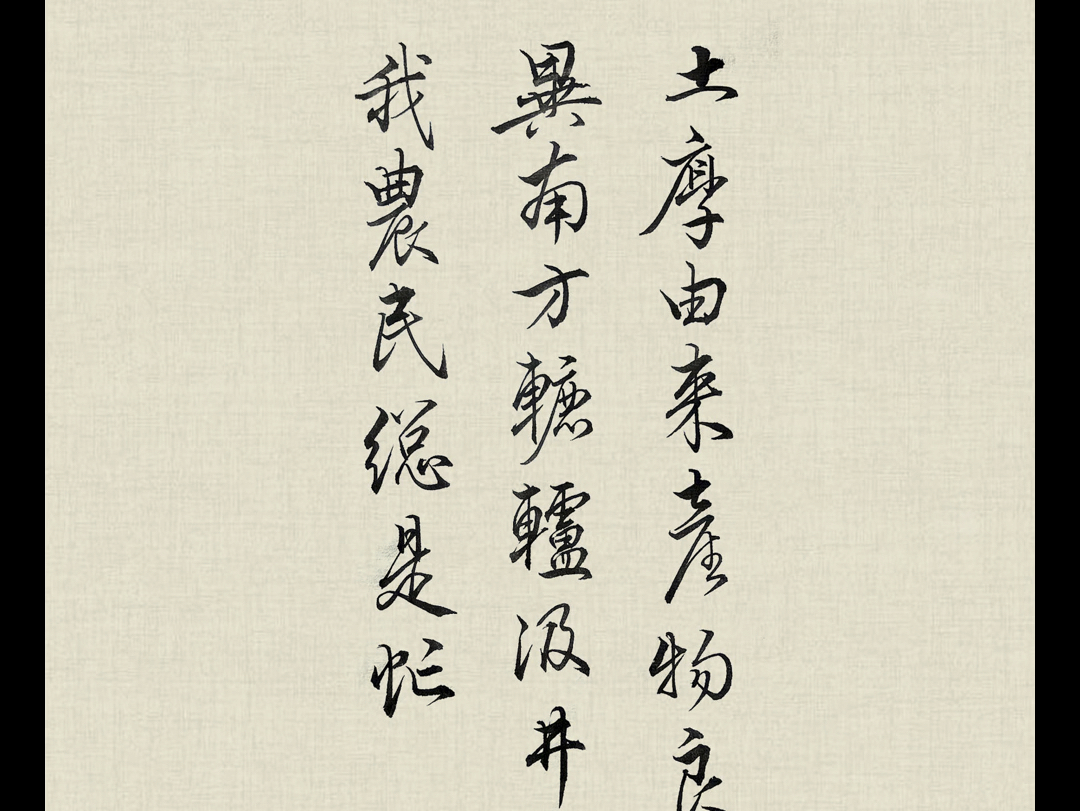 土厚由来產物良
異南方轆轤汲井
我農民總是忙